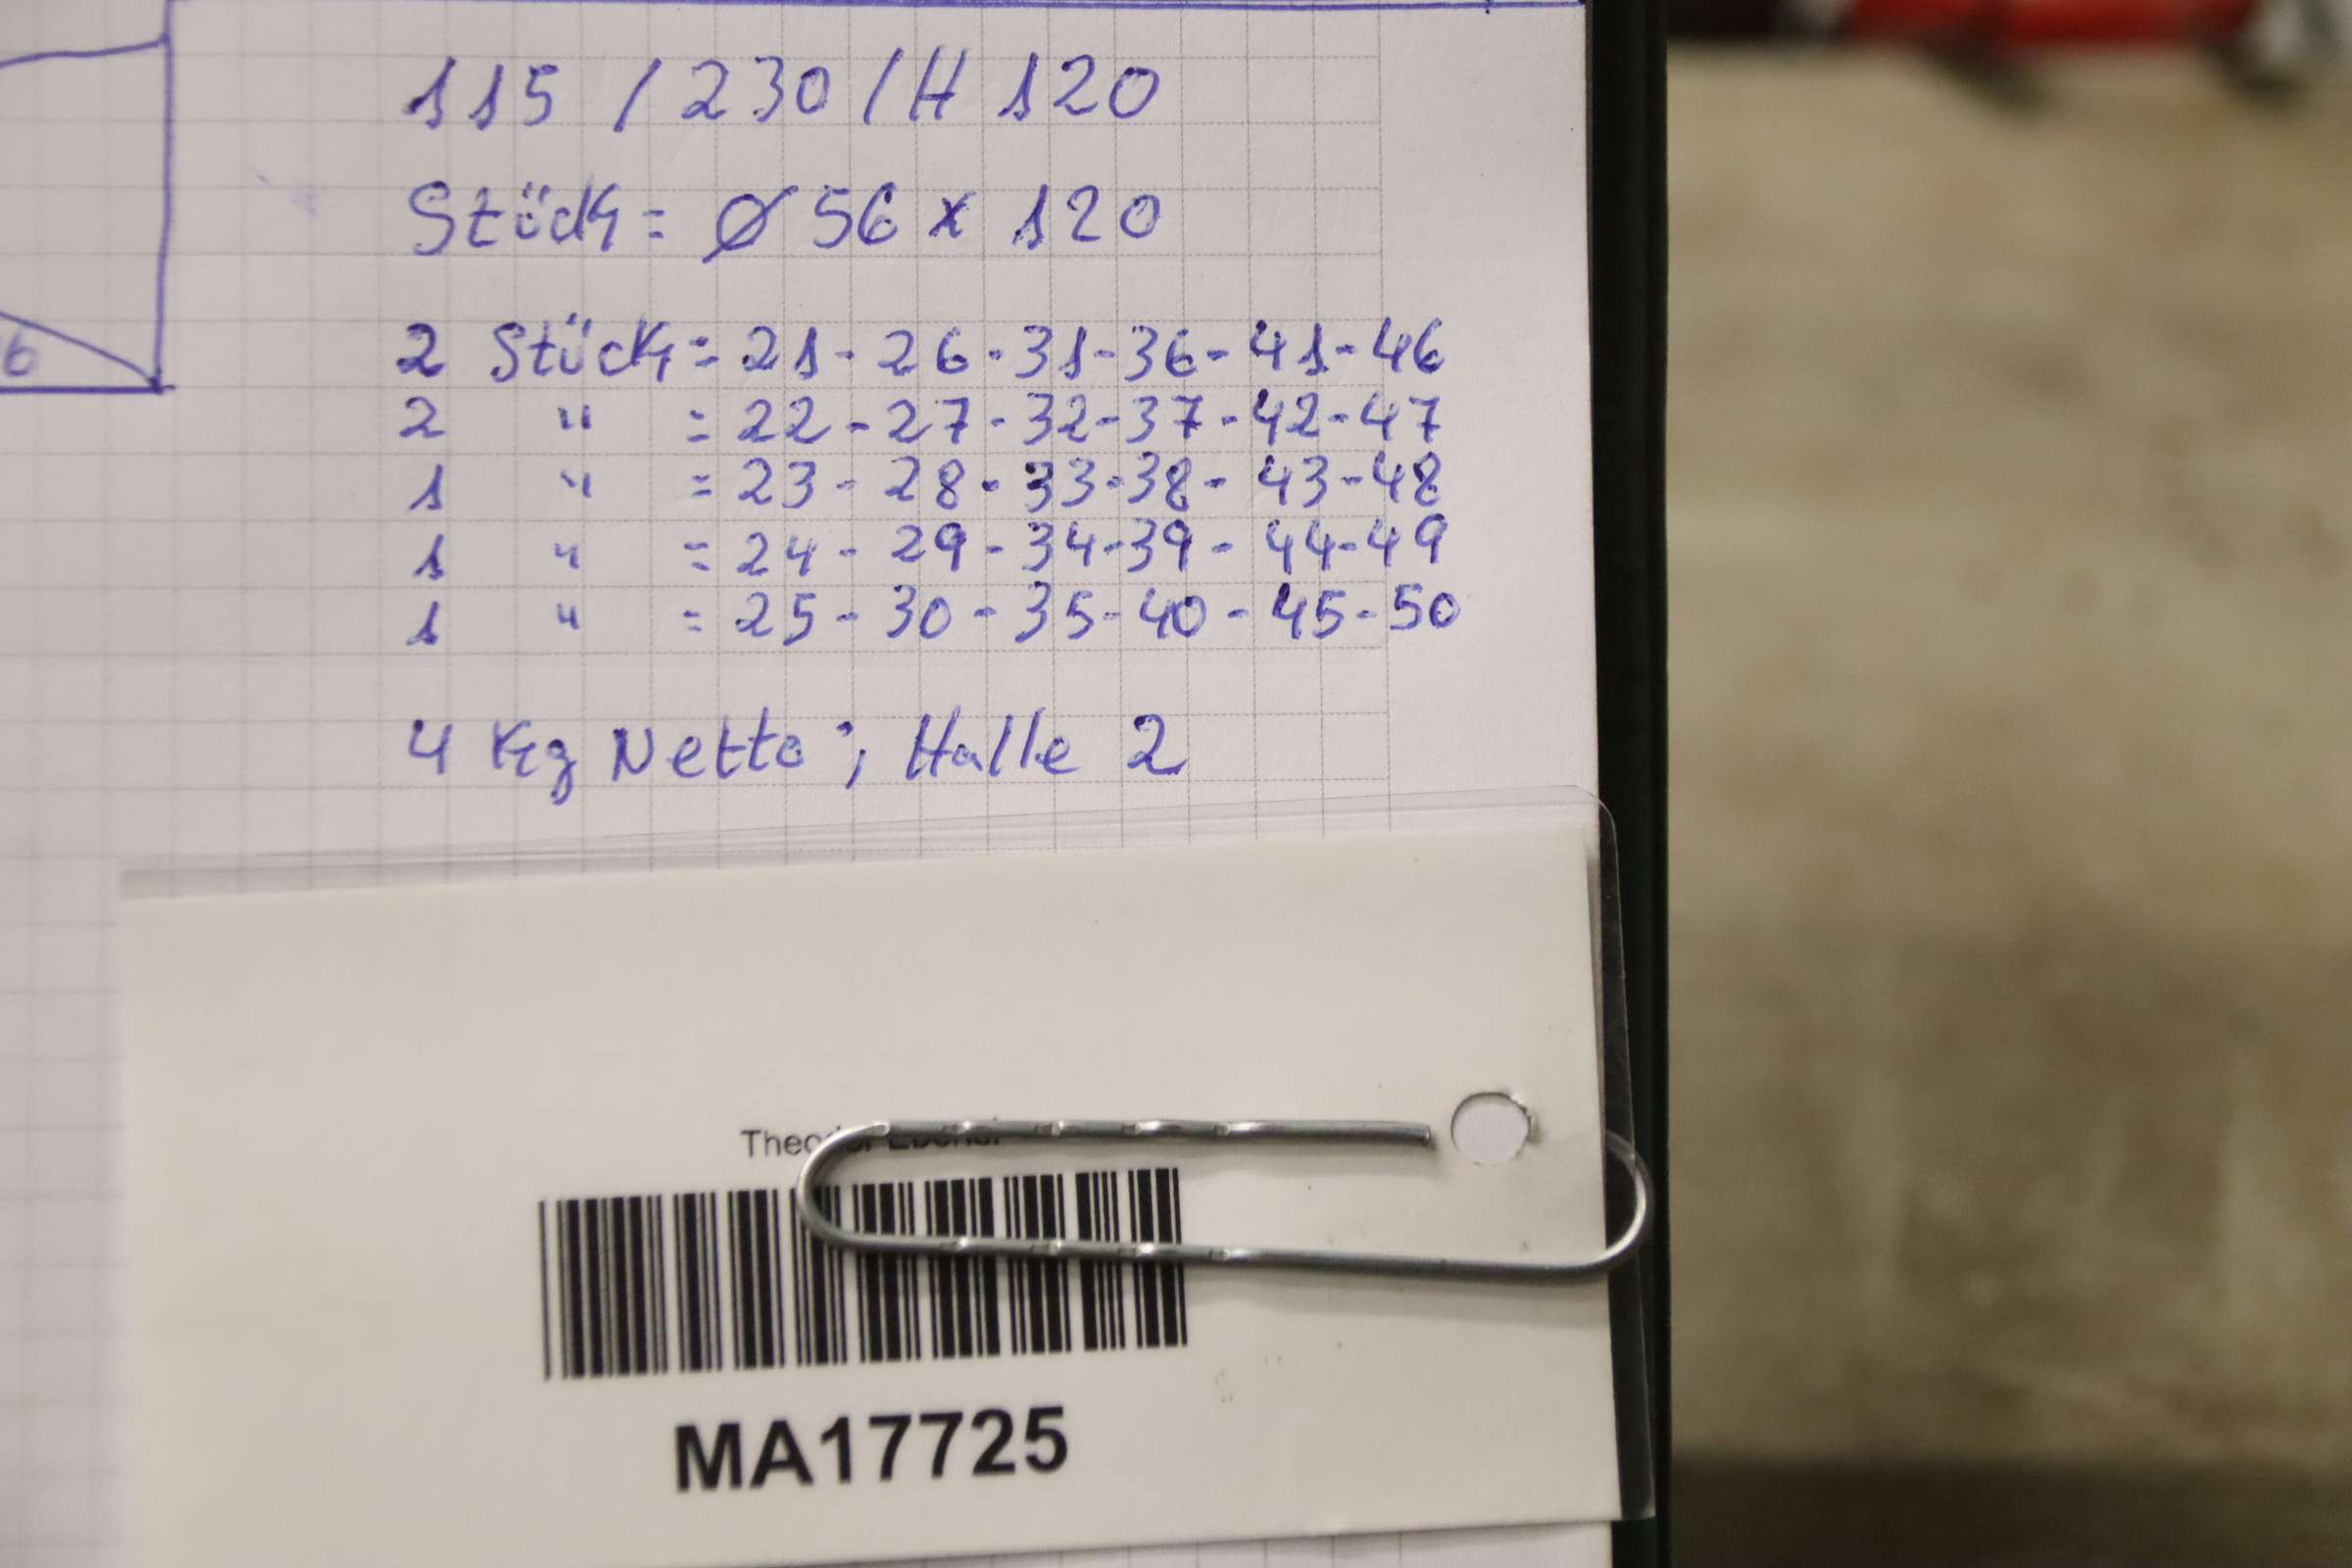 115 / 230 / H 120
Stück = Ø 56 x 120
6
2 Stück = 21 - 26 - 31 - 36 - 41 - 46
2 " = 22 - 27 - 32 - 37 - 42 - 47
1 " = 23 - 28 - 33 - 38 - 43 - 48
1 " = 24 - 29 - 34 - 39 - 44 - 49
1 " = 25 - 30 - 35 - 40 - 45 - 50
4 Kg Netto ; Halle 2
Theodor
MA17725